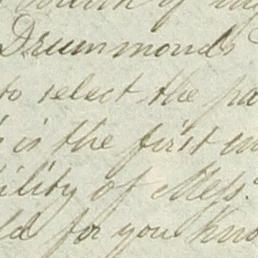 Drummonds
to select the pa
is the first in
ility of Mess.
ld for you kno